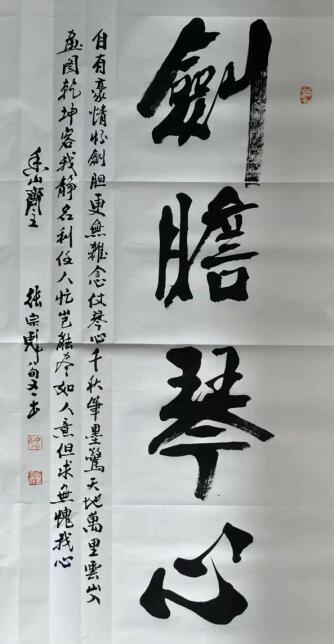 劍膽琴心
自有豪情怀劍胆更無雜念仗琴心千秋筆墨驚天地萬里雲山入
畫圖乾坤容我靜名利任人忙岂能尽如人意但求無愧我心
香山齋主 張宗